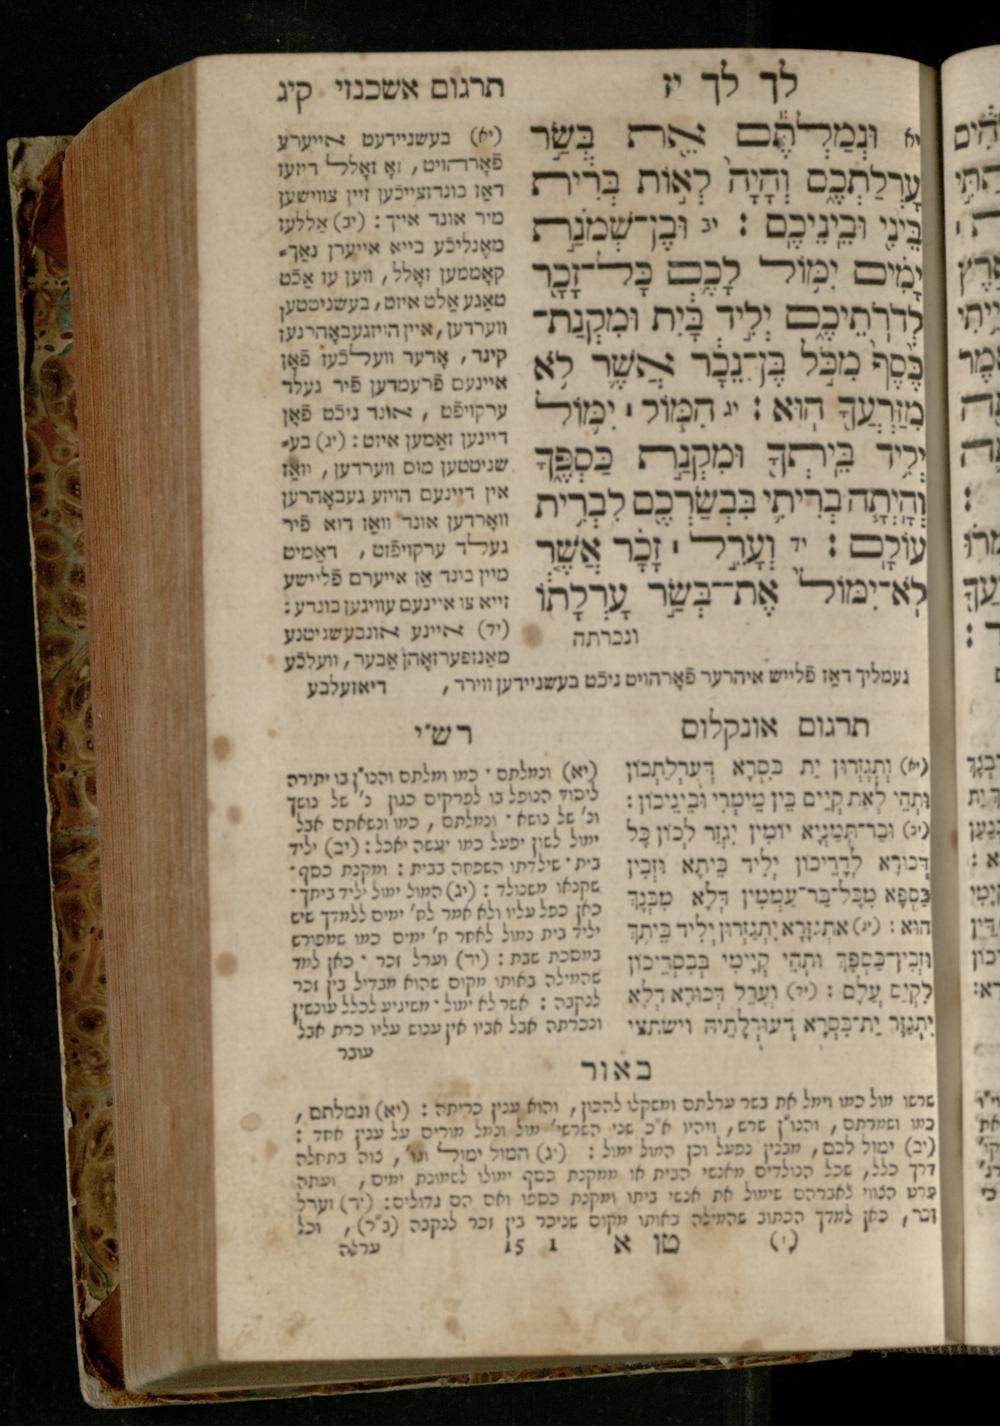 לך לך יז
תרגום אשכנזי קיג
יא וּנְמַלְתֶּ֕ם אֵ֖ת בְּשַׂ֣ר
עָרְלַתְכֶ֑ם וְהָיָה֙ לְא֣וֹת בְּרִ֔ית
בֵּינִ֖י וּבֵינֵיכֶֽם : יב וּבֶן־שְׁמֹנַ֣ת
יָמִ֗ים יִמּ֥וֹל לָכֶ֛ם כָּל־זָכָ֖ר
לְדֹרֹתֵיכֶ֑ם יְלִ֣יד בָּ֔יִת וּמִקְנַת־
כֶּ֙סֶף֙ מִכֹּ֣ל בֶּן־נֵכָ֔ר אֲשֶׁ֛ר לֹ֥א
מִֽזַּרְעֲךָ֖ הֽוּא : יג הִמּ֧וֹל ׀ יִמּ֛וֹל
יְלִ֥יד בֵּֽיתְךָ֖ וּמִקְנַ֣ת כַּסְפֶּ֑ךָ
וְהָיְתָ֧ה בְרִיתִ֛י בִּבְשַׂרְכֶ֖ם לִבְרִ֥ית
עוֹלָֽם : יד וְעָרֵ֣ל ׀ זָכָ֗ר אֲשֶׁ֤ר
לֹֽא־יִמּוֹל֙ אֶת־בְּשַׂ֣ר עָרְלָת֔וֹ
ונכרתה
(יא) בעשניידעט אייערע
פֿאָרהויט, זאָ זאָלל דיזעז
דאַז בונדזצייכֿען זיין צווישען
מיר אונד אייך : (יב) אַללעז
מאֶנליכֿע בייא אייערן נאָך־
קאָממען זאָלל, ווען עז אַכֿט
טאַגע אַלט איזט, בעשניטטען
ווערדען, איין הויזגעבאָהרנעז
קינד, אָדער וועלכֿעז פֿאָן
איינעם פֿרעמדען פֿיר געלד
ערקויפֿט, אונד ניכֿט פֿאָן
דיינען זאַמען איזט : (יג) בע־
שניטטען מוס ווערדען, וואַז
אין דיינעם הויזע געבאָהרען
וואָרדען אונד וואַז דוא פֿיר
געלד ערקויפֿזט, דאַמיט
מיין בונד אַן אייערם פֿליישע
זייא צו איינעם עוויגען בונדע :
(יד) איינע אונבעשניטנע
מאַנזפערזאָהן אַבער, וועלכֿע
נעמליך דאַז פֿלייש איהרער פֿאָרהויט ניכֿט בעשניידען ווירד, דיאזעלבע
תרגום אונקלוס
(יא) וְתִגְזְרוּן יָת בִּסְרָא דְּעָרְלַתְכוֹן
וּתְהֵי לְאָת קְיָם בֵּין מֵימְרִי וּבֵינֵיכוֹן :
(יב) וּבַר־תְּמַנְיָא יוֹמִין יִגְזַר לְכוֹן כָּל
דְּכוּרָא לְדָרֵיכוֹן יְלִיד בֵּיתָא וּזְבִין
כַּסְפָּא מִכָּל־בַּר־עַמְמִין דְּלָא מִבְּנָךְ
הוּא : (יג) אִתְגְּזָרָא יִתְגַּזְרוּן יְלִיד בֵּיתָךְ
וּזְבִין־כַּסְפָּךְ וּתְהֵי קְיָמִי בְּבִסְרֵיכוֹן
לִקְיַם עֲלָם : (יד) וְעָרֵל דְּכוּרָא דְּלָא
יִתְגְּזַר יַת־בִּסְרָא דְעוּרְלָתֵיהּ וישתצי
רש״י
(יא) ונמלתם · כמו ומלתם והנו״ן בו יתירה
ליסוד הנופל בו לפרקים כגון נ' של נושך
ונ' של נושא · ונמלתם, כמו ונשאתם אבל
ימול לשון יפעל כמו יעשה יאכל : (יב) יליד
בית · שילדתו השפחה בבית : ומקנת כסף ·
שקנאו משנולד : (יג) המול ימול יליד ביתך ·
כאן כפל עליו ולא אמר לח' ימים ללמדך שיש
יליד בית נמול לאחר ח' ימים כמו שמפורש
במסכת שבת : (יד) וערל זכר · כאן למד
שהמילה באותו מקום שהוא מבדיל בין זכר
לנקבה : אשר לא ימול · משיגיע לכלל עונשין
ונכרתה אבל אביו אין ענוש עליו כרת אבל
עובר
באור
שרשו מול כמו וימל את בשר ערלתם ומשקלו להכון, והוא ענין כריתה : (יא) ונמלתם,
כמו ושמרתם, והנו״ן שרש, ויהיו א״כ שני השרשי' מול ונמל מורים על ענין אחד :
(יב) ימול לכם, מבנין נפעל וכן המול ימול : (יג) המול ימול וגו', צוה בתחלה
דרך כלל, שכל הנולדים מאנשי הבית או ממקנת כסף ימולו לשמונת ימים, ועתה
פרט הצווי לאברהם שימול את אנשי ביתו ומקנת כספו ואם הם גדולים: (יד) וערל
זכר, כאן למדך הכתוב שהמילה באותו מקום שניכר בין זכר לנקבה (ב״ר), וכל
(י) טו א 1 15 ערלה